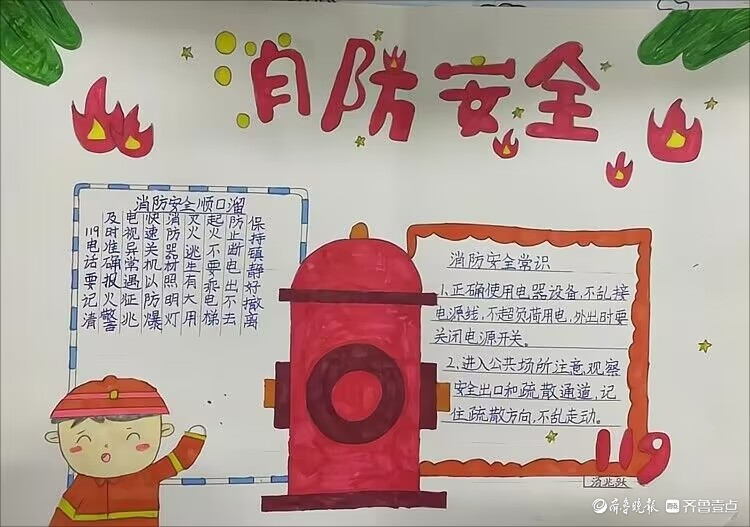 消防安全
消防安全顺口溜
119电话要记清
及时准确报火警
电视异常遇征兆
快速关机以防爆
消防器材照明灯
灭火逃生有大用
起火不要乘电梯
防止断电出不去
保持镇静好撤离
消防安全常识
1.正确使用电器设备,不乱接
电源线,不超负荷用电,外出时要
关闭电源开关。
2.进入公共场所注意观察
安全出口和疏散通道,记
住疏散方向,不乱走动。
119
齐鲁晚报 齐鲁壹点